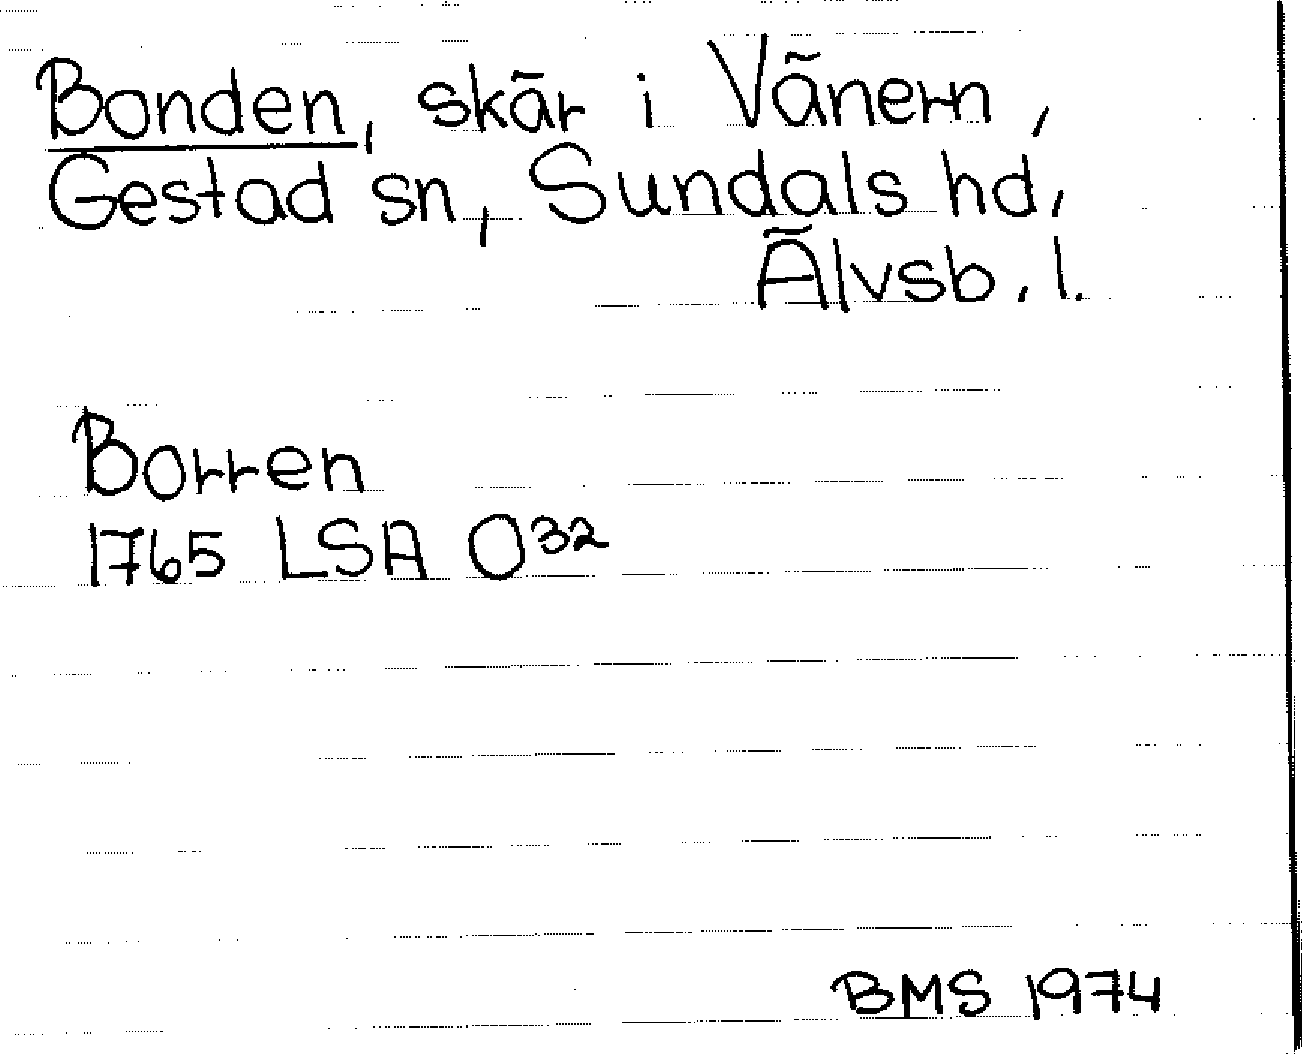 Bonden, skär i Vänern,
Gestad sn, Sundals hd,
Älvsb. l.
Borren
1765 LSA O32
BMS 1974